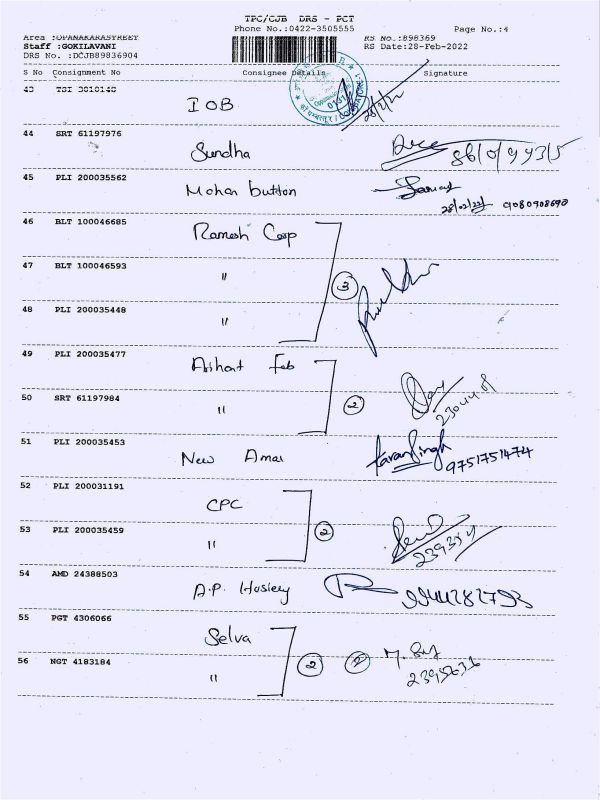 TPC/CJB DRS - PCT
Phone No.:0422-3505555 Page No.:4
Area :OPANAKARASTREET RS No.:898369
Staff :GOKILAVANI RS Date:28-Feb-2022
DRS No. :DCJB89836904
S No Consignment No Consignee Details Signature
43 IOB 28/2/22
44 SRT 61197976 Sundha
45 PLI 200035562 Mohan button 28/02/22 9080908690
46 BLT 100046685 Ramesh Corp
47 BLT 100046593 " 3
48 PLI 200035448 "
49 PLI 200035477 Arihant Feb
50 SRT 61197984 " 2
51 PLI 200035453 New Amar taran Singh 9751751474
52 PLI 200031191 CPC
53 PLI 200035459 " 2
54 AMD 24388503 A.P. Hosiery 9944282793
55 PGT 4306066 Selva
56 NGT 4183184 " 2 2